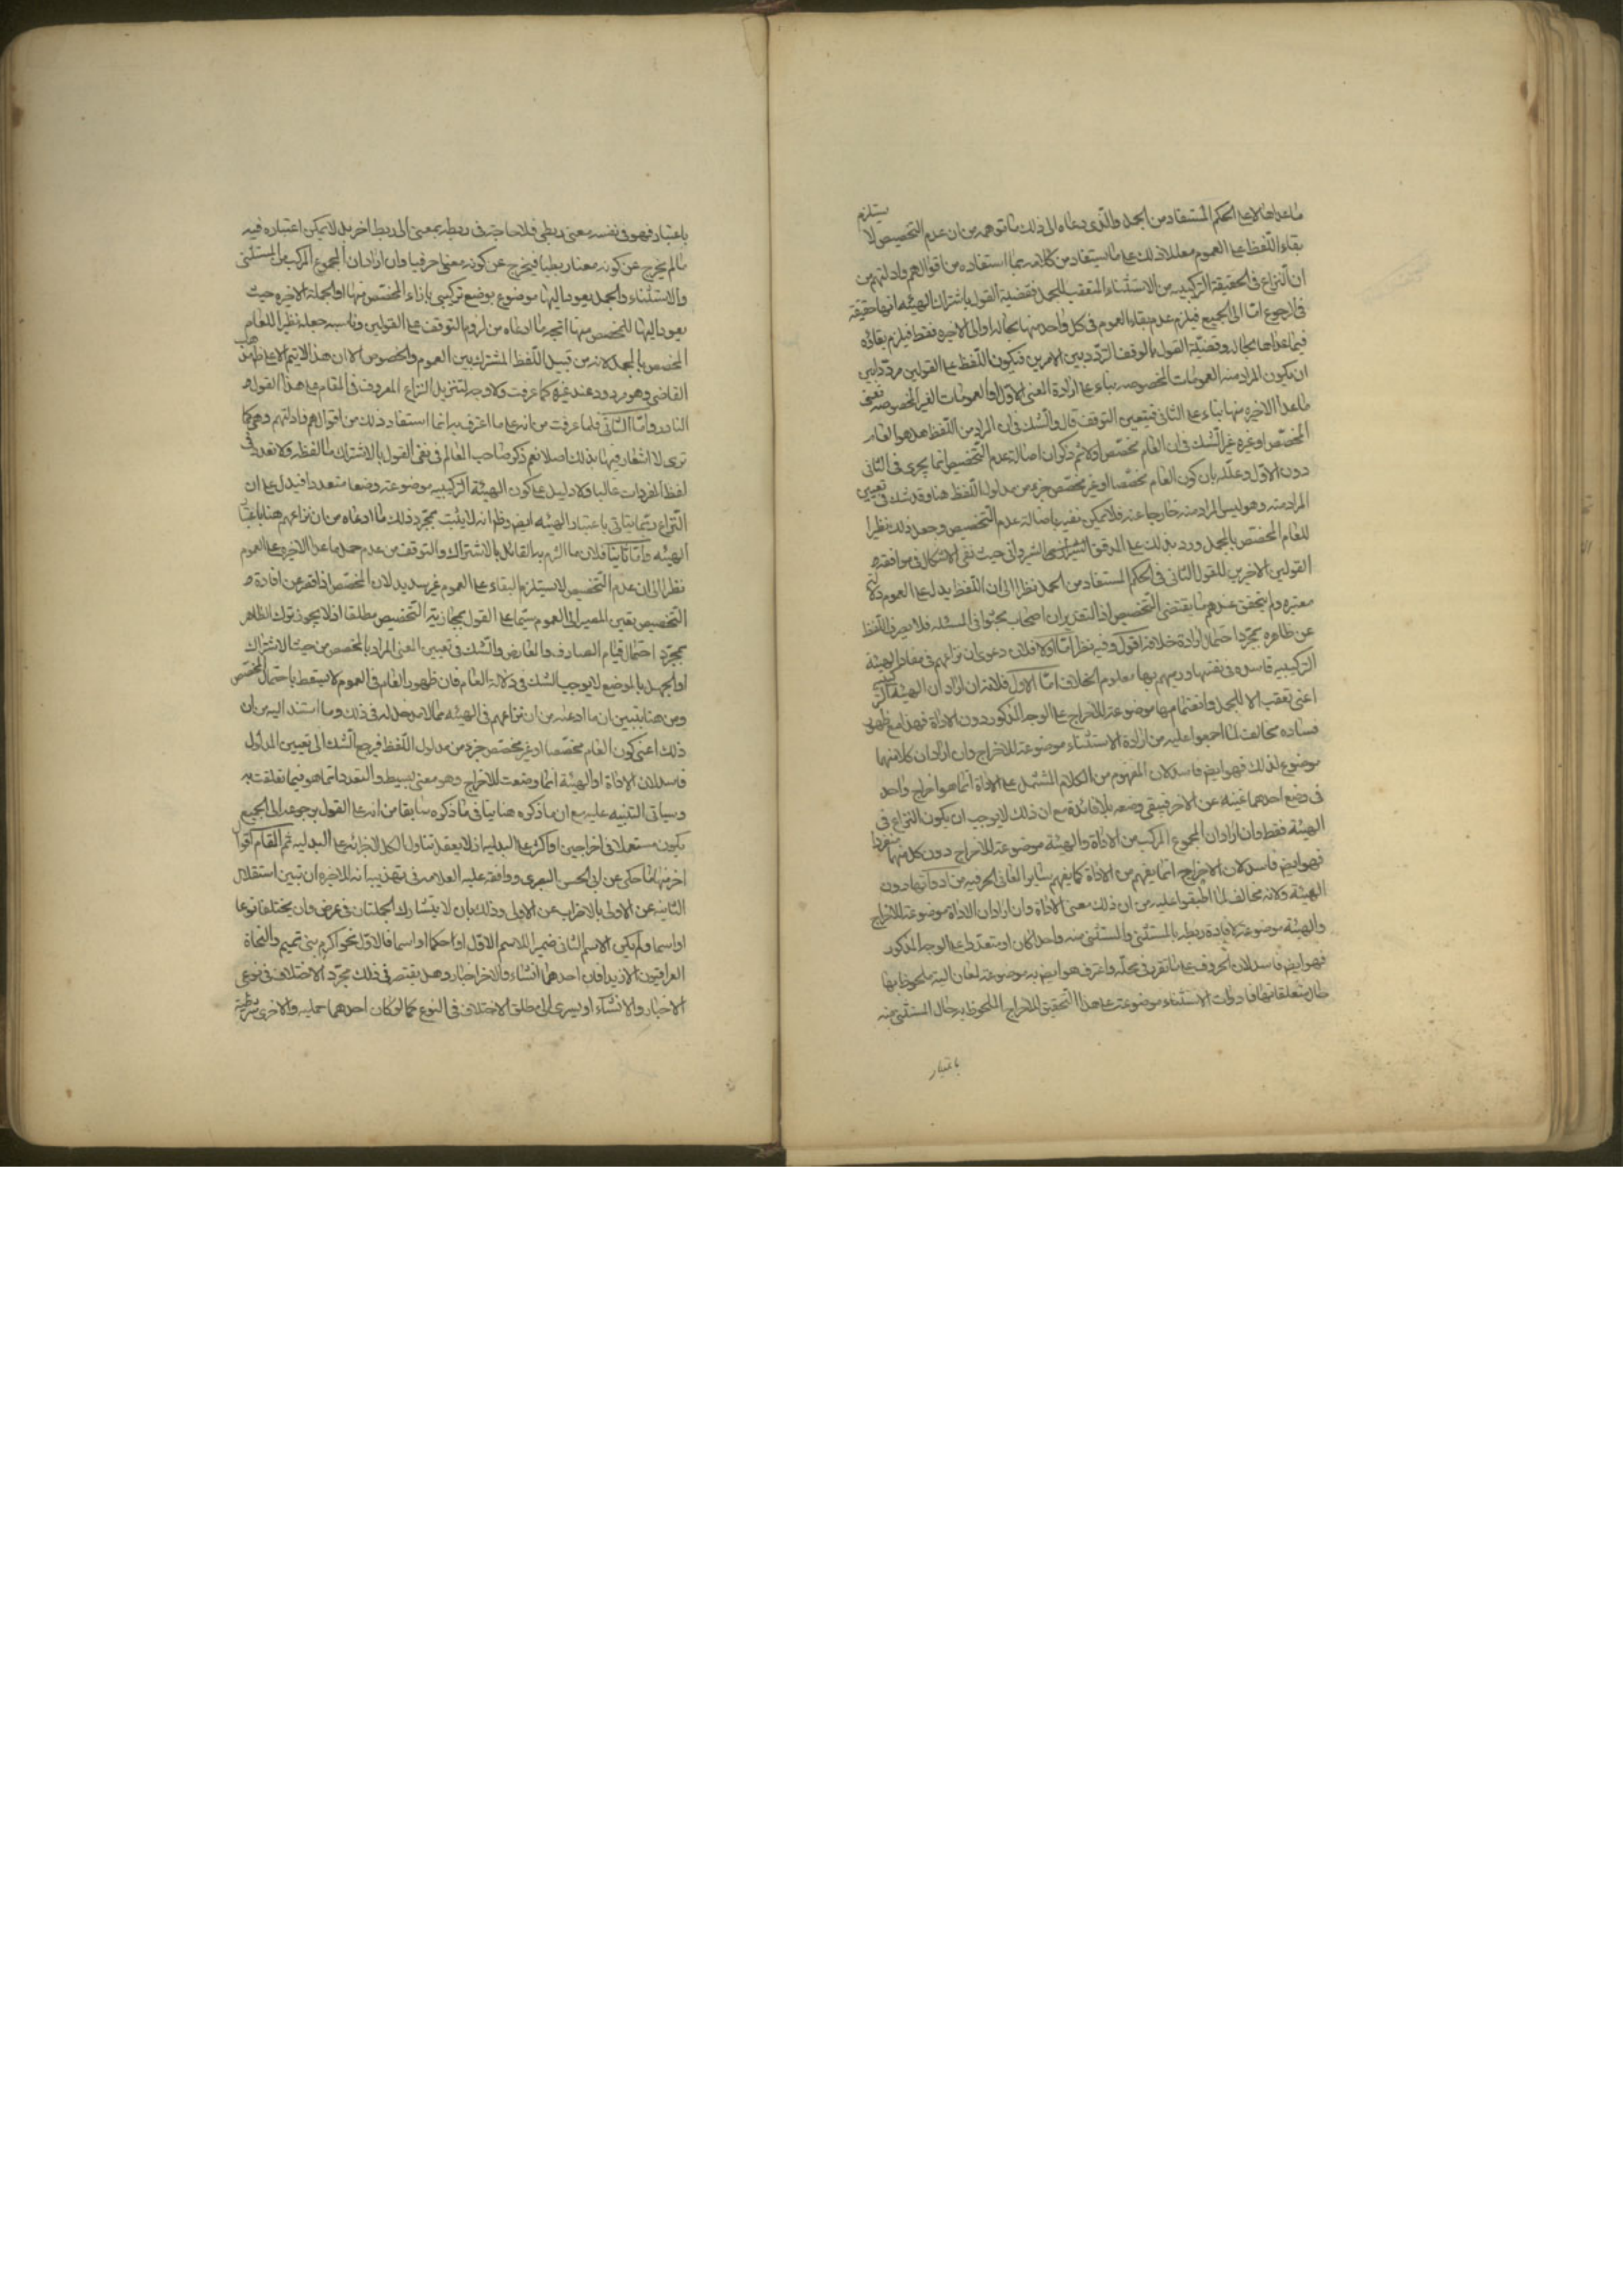 ماعداها لا على الحكم المستفاد من الجمل والذى دعاه الى ذلك ما توهمه من ان عدم التخصيص لا يستلزم
بقاء اللفظ على العموم معللا ذلك على ما يستفاد من كلامه بما استفاده من اقوالهم وادلتهم من
ان النزاع فى الحقيقة التركيبيه من الاستثناء المتعقب للجمل فقضية القول باشتراك الهيئه انها حقيقة
فى الرجوع امّا الى الجميع فيلزم عدم بقاء العموم فى كل واحد منها بحاله او الى الاخيره فقط فيلزم بقاؤه
فيما عداها بحاله وقضيّة القول بالوقف التردّد بين الامرين فيكون اللفظ على القولين مردّدا بين
ان يكون المراد منه العمومات المخصوصه بناء على ارادة المعنى الاول والعمومات الغير المخصوصه فى
ماعدا الاخيره منها بناء على الثانى فيتعين التوقف قال والشك فى ان المراد من اللفظ هل هو العام
المخصّص او غيره غير الشك فى ان العام مخصّص او لا ثم ذكر ان اصالة عدم التخصيص انما يجرى فى الثانى
دون الاول وعلّله بان كون العام مخصّصا او غير مخصّص جزء من مدلول اللفظ هنا وقد شك فى تعيين
المراد منه وهو ليس المراد منه خارجا عنه فلا يمكن نفيه باصالة عدم التخصيص وجعل ذلك نظيرا
للعام المخصّص بالمجمل ورد بذلك على المدقق الشيرازى الشيروانى حيث نفى الاشكال فى موافقة
القولين الاخيرين للقول الثانى فى الحكم المستفاد من الجمل نظرا الى ان اللفظ يدل على العموم دلالة
معتبره ولم يتحقق عندهم ما يقتضى التخصيص اذ التقدير ان اصحاب بحثوا فى المسئله فلا يصرف اللفظ
عن ظاهره بمجرّد احتمال ارادة خلافه اقول وفيه نظر امّا اولا فلان دعوى ان نزاعهم فى مفاد الهيئة
التركيبيه فاسده فى نفسها ورميهم بها معلوم الخلاف امّا الاول فلانه ان اراد ان الهيئة التركيبية
اعنى تعقب الا للجمل وانضمامها موضوعة للاخراج على الوجه المذكور دون الاداة فهذا مع ظهور
فساده مخالف لما اجمعوا عليه من ارادة الاستثناء موضوعة للاخراج وان اراد ان كلا منهما
موضوع لذلك فهو ايضا فاسد لان المفهوم من الكلام المشتمل على الاداة انما هو اخراج واحد
فى وضع احدهما غنيه عن الاخر فيبقى وضعه بلا فائدة مع ان ذلك لا يوجب ان يكون النزاع فى
الهيئة فقط وان اراد ان المجموع المركب من الاداة والهيئة موضوعة للاخراج دون كل منهما منفردا
فهو ايضا فاسد لان الاخراج انما يفهم من الاداة كما يفهم سائر المعانى الحرفيه من ادواتها دون
الهيئة ولانه مخالف لما اطبقوا عليه من ان ذلك معنى الاداة وان اراد ان الاداة موضوعة للاخراج
والهيئة موضوعة لافادة ربطه بالمستثنى والمستثنى منه واحدا كان او متعدّدا على الوجه المذكور
فهو ايضا فاسد لان الحروف على ما تقرر فى محلّه واعترف هو ايضا به موضوعة لمعان الية ملحوظ بها
حال متعلقاتها فادوات الاستثناء موضوعة على هذا التحقيق للاخراج الملحوظ به حال المستثنى منه
باعتبار
باعتبار فهو فى نفسه معنى ربطى فلا حاجة فى ربطه بمعنى الى ربط اخر بل لا يمكن اعتباره فيه
ما لم يخرج عن كونه معنا ربطيا فيخرج عن كونه معنى حرفيا وان اراد ان المجموع المركب من المستثنى
والاستثناء والجمل يعود اليها موضوع بوضع تركيبى بازاء المخصّص منها او الجملة الاخيره حيث
يعود اليها للتخصص منها اتجه ما ادعاه من لزوم التوقف على القولين وناسبه جعله نظيرا للعام
المخصص بالمجمل لانه من قبيل اللفظ المشترك بين العموم والخصوص الا ان هذا لا يتم الا على مذهب
القاضى وهو مردود عند غيره كما عرفت ولا وجه لتنزيل النزاع المعروف فى المقام على هذا القول
النادر وامّا الثانى فلما عرفت من انه على ما اعترف به انما استفاد ذلك من اقوالهم وادلتهم وهى كما
ترى لا اشعار فيها بذلك اصلا نعم ذكر صاحب المعالم فى نفى القول بالاشتراك ما لفظه ولا تعدد فى
لفظ المفردات غالبا ولا دليل على كون الهيئة التركيبيه موضوعة وضعا متعددا فيدل على ان
النزاع ربّما يتاتى باعتبار الهيئه ايضا وظاهر انه لا يثبت بمجرّد ذلك ما ادعاه من ان نزاعهم هنا باعتبار
الهيئه وامّا ثانيا فلان ما التزم به القائل بالاشتراك والتوقف من عدم حمل ماعدا الاخيره على العموم
نظرا الى ان عدم التخصيص لا يستلزم البقاء على العموم غير سديد لان المخصّص اذا قصر عن افادة
التخصيص تعين المصير الى العموم سيّما على القول بمجازية التخصيص مطلقا اذ لا يجوز ترك الظاهر
بمجرّد احتمال قيام الصارف والمعارض والشك فى تعيين المعنى المراد بالمخصص من حيث الاشتراك
او الجهل بالموضع لا يوجب الشك فى دلالة العام فان ظهور العام فى العموم لا يسقط باحتمال المخصّص
ومن هنا يتبين ان ما ادعاه من ان نزاعهم فى الهيئه مما لا مدخل له فى ذلك وما استند اليه من ان
ذلك اعنى كون العام مخصّصا او غير مخصّص جزء من مدلول اللفظ فيرجع الشك الى تعيين المدلول
فاسد لان الاداة او الهيئة انما وضعت للاخراج وهو معنى بسيط والتعدد انما هو فيما تعلقت به
وسياتى التنبيه عليه مع ان ما ذكره هنا ينافى ما ذكره سابقا من انه على القول برجوعه الى الجميع
يكون مستعملا فى اخراجين او اكثر على البدليه اذ لا يعقل تناول الكل لاجزائه على البدليه ثم فى المقام اقوال
اخر منها ما حكى عن ابى الحسن البصرى ووافقه عليه العلامه فى تهذيبه انه للاخيره ان تبين استقلال
الثانيه عن الاولى بالاضراب عن الاولى وذلك بان لا يتشارك الجملتان فى غرض وان يختلفا نوعا
او اسما ولم يكن الاسم الثانى ضميرا للاسم الاول او احكما او اسما فالاول نحو اكرم بنى تميم والنحاة
العراقيون الا زيدا فان احدهما انشاء والاخر اخبار وهل يقتصر فى ذلك مجرّد الاختلاف فى نوعى
الاخبار والانشاء او يسرى الى مطلق الاختلاف فى النوع كما لو كان احدهما حمليه والاخرى شرطية